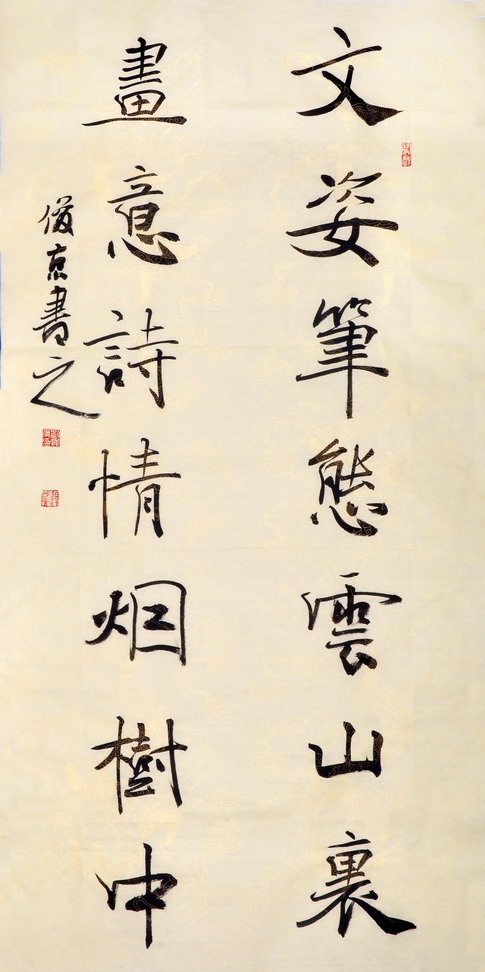 文姿筆態雲山裏
畫意詩情烟樹中
俊京書之